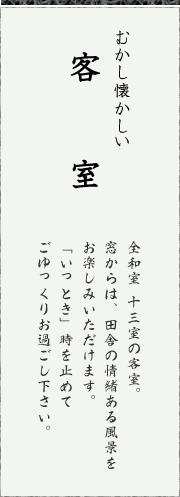 むかし懐かしい
客室
全和室 十三室の客室。
窓からは、田舎の情緒ある風景を
お楽しみいただけます。
「いっとき」時を止めて
ごゆっくりお過ごし下さい。